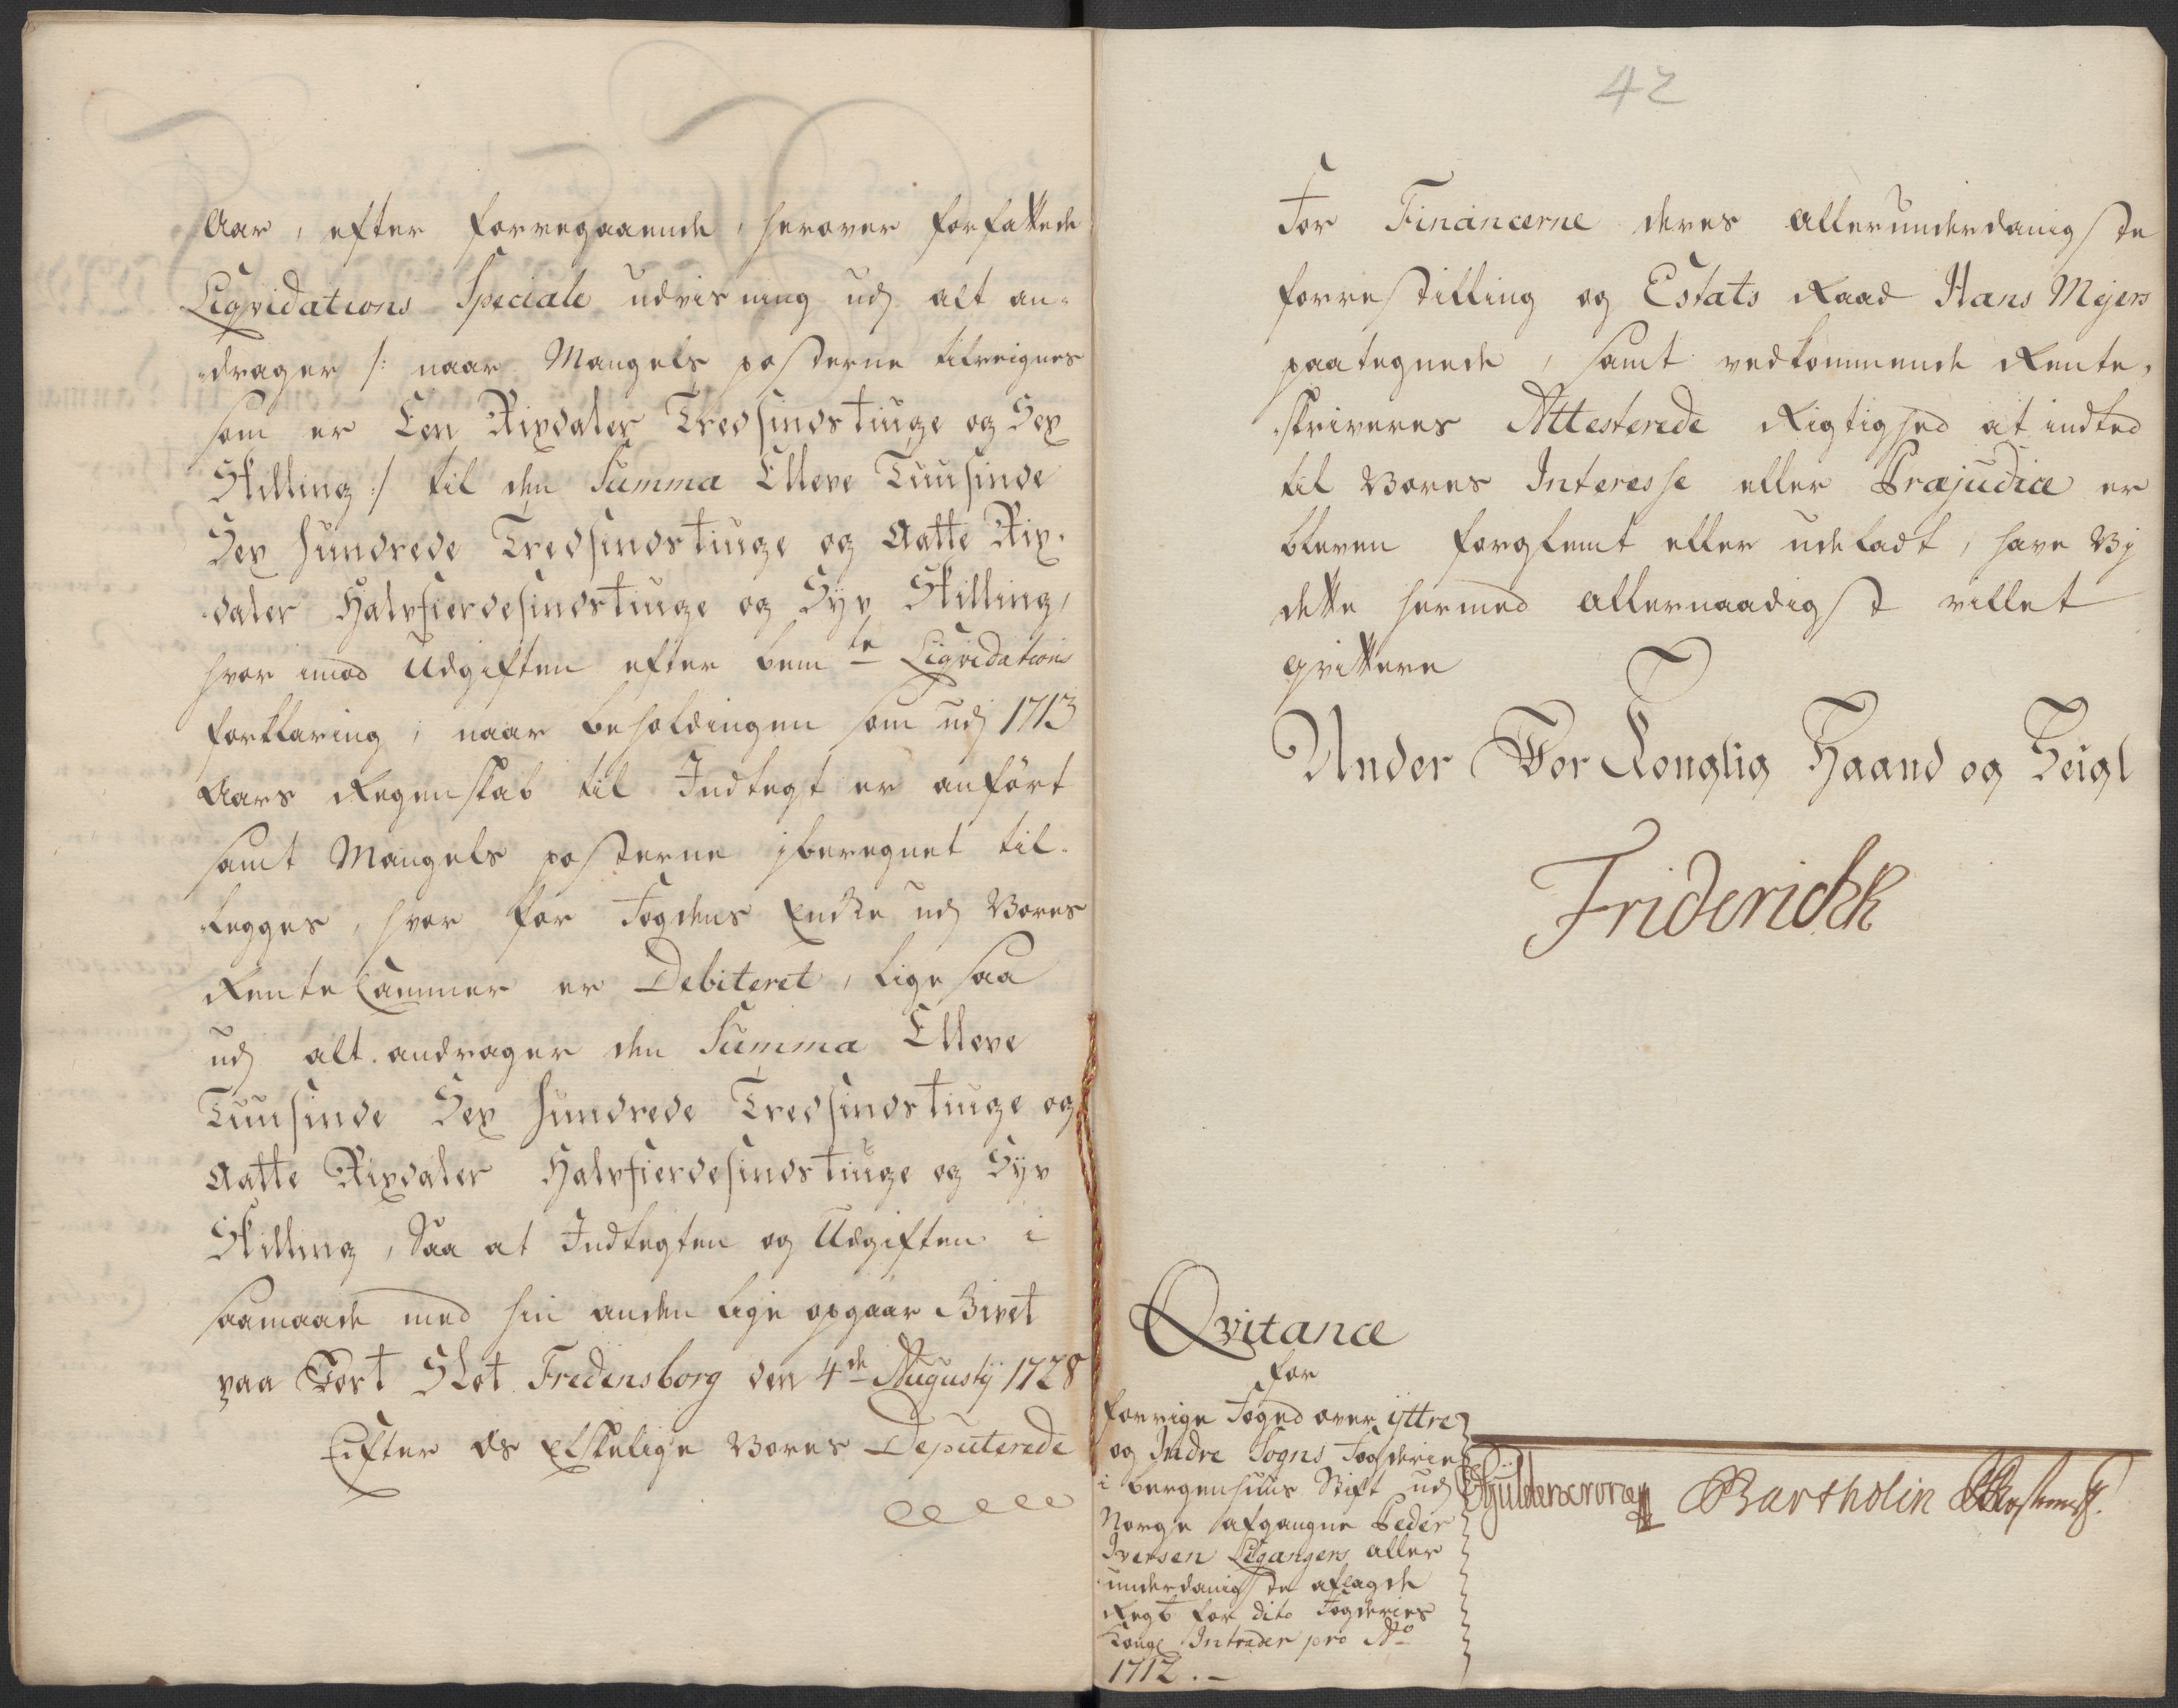 Aar, efter forregaaende, herover forfattede
Liqvidations Speciale udvisning udj alt an-
drager /: naar Mangels posterne tilreignes
som er Een Rixdaler Tredsindstiuge og Sex
Skilling :/ til den Summa Elleve Tuusinde
Sex hundrede Tredsindstiuge og Aatte Rix-
daler Halvfierdesindstiuge og Syv Skilling,
hvor imod Udgiften efter bem.te Liqvidations
forklaring, naar beholdingen som udj 1713
Aars Regenskab til Indtegt er anført
samt Mangels posterne iberegnet til-
legges, hvor for Fogdens Encke udj Vores
Rente Cammer er Debiteret, lige saa
udj alt andrager den Summa Elleve
Tuusinde Sex hundrede Tredsindstiuge og
Aatte Rixdaler Halvfierdesindstiuge og Syv
Skilling, Saa at Indtegten og Udgiften i
saamaade med hin anden lige opgaar Givet
paa Vort Slot Fredensborg den 4de Augustij 1728
Eifter os Elskelige Vores Deputerede
42
For Financerne deres allerunderdanigste
forrestilling og Estats Raad Hans Mejers
paategnede, samt vedkommende Rente-
skriveres Attesterede Rigtighed at indted
til Vores Interesse eller Præjudice er
bleven forglemt eller udeladt, have Vj
dette hermed allernaadigst villet
qvittere
Under Vor Konglig Haand og Seigl
Friderich R
Qvitance
for
forrige Foged over Yttre
og Indre Sogns Fogderie
i Bergenhuus Stift udj
Norge afgangne Peder
Iversen Ligangers aller
underdanigste aflagde
Regb for dito Fogderies
Konge Intrader pro Ao
1712.
Güldencrone Bartholin